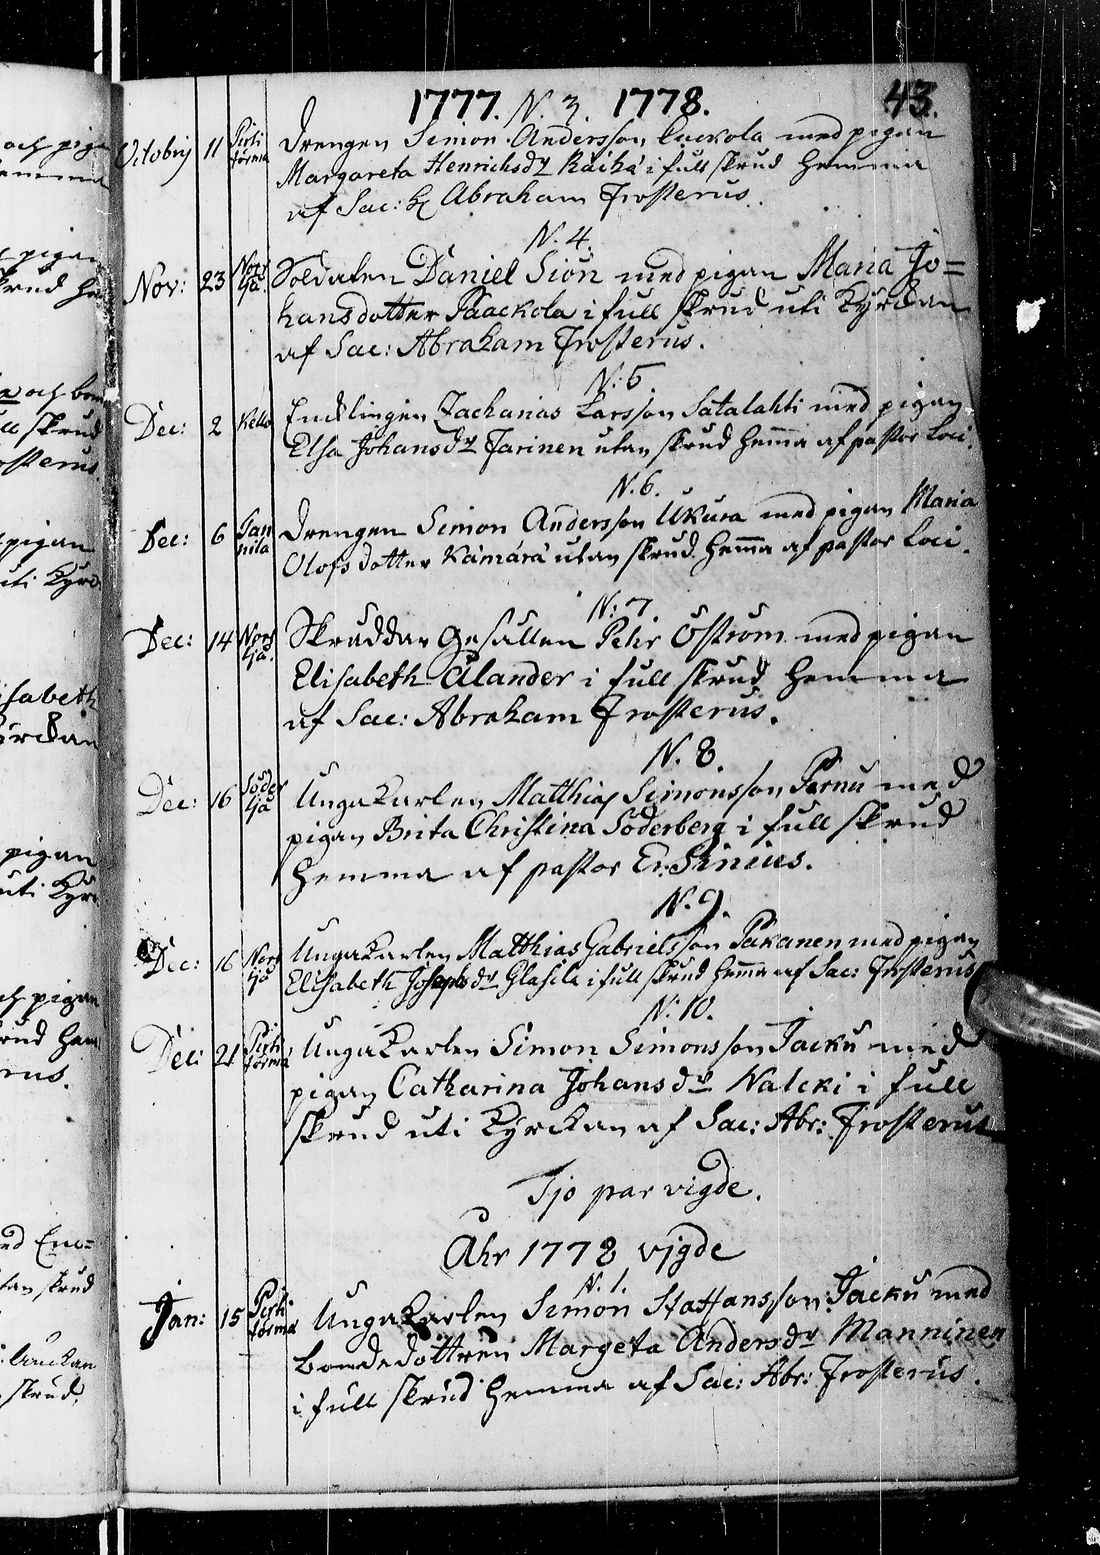 1777. N. 3. 1778. 43.
Octobrij 11 Pirti törmä Drengen Simon Andersson Packola med pigan
Margareta Henrichsdr Räihä i full skrud hemma
af Sac: Abraham Frosterus.
N. 4.
Nov: 23 Norr ljä. Soldaten Daniel Siön med pigan Maria Jo=
hansdotter Paackola i full skrud uti Kyrckan
af Sac: Abraham Frosterus.
N: 5.
Dec: 2 Kello Encklingen Zacharias Larsson Satalahti med pigan
Elsa Johansdr Jarinen utan skrud hemma af pastor Loci.
N. 6.
Dec: 6 Jan nila Drengen Simon Andersson Ukura med pigan Maria
Olofsdotter Kämärä utan skrud hemma af pastor Loci.
N: 7.
Dec: 14 Norr ljä. Skräddar Gesällen Pehr Öström med pigan
Elisabeth Ålander i full skrud hemma
af Sac: Abraham Frosterus.
N. 8.
Dec: 16 Söder ljä Ungakarlen Matthias Simonsson Pernu med
pigan Brita Christina Söderberg i full skrud
hemma af pastor
N. 9.
Dec: 16 Norr ljä Ungakarlen Matthias Gabrielsson Pakanen med pigan
Elisabeth Josephsdr i full skrud hemma af Sac: Frosterus
N. 10.
Dec: 21 Pirti törmä Ungakarlen Simon Simonsson Jacku med
pigan Catharina Johansdr Naleki i full
skrud uti Kyrckan af Sac: Abr: Frosterus
Tjo par vigde.
Åhr 1778 vigde
N. 1.
Jan: 15 Pirti törmä Ungakarlen Simon Staffansson Jacku med
bondedottren Margeta Andersdr Manninen
i full skrud hemma af Sac: Abr: Frosterus.